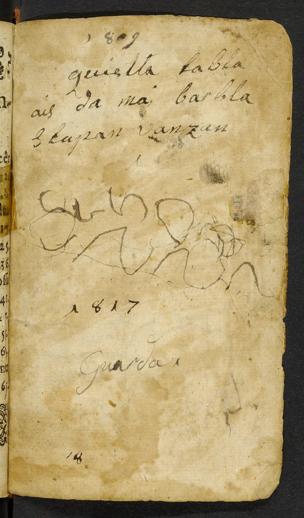 1809
quiesta tabla
ais da mai barbla
Stupan vanzun
1817
Guarda
18